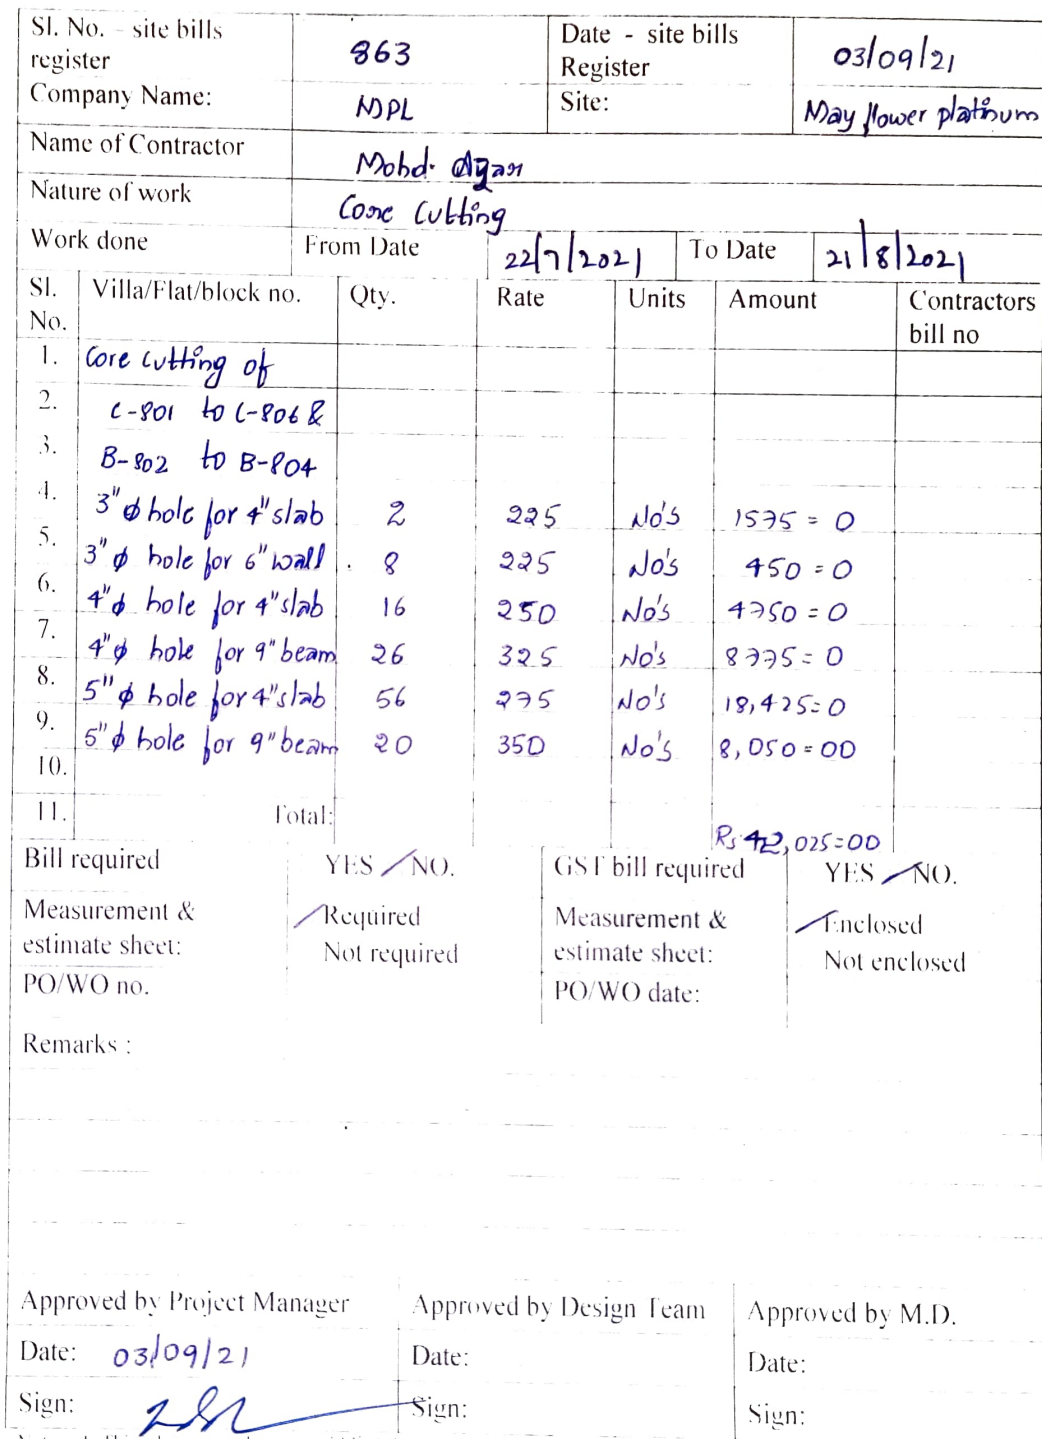 Sl. No. - site bills register 863 Date - site bills Register 03/09/21
Company Name: MPL Site: May flower platinum
Name of Contractor Mohd.
Nature of work Core Cutting
Work done From Date 22/7/2021 To Date 21/8/2021
Sl. No. Villa/Flat/block no. Qty. Rate Units Amount Contractors bill no
1. Core cutting of
2. C-801 to C-806 &
3. B-802 to B-804
4. 3"ϕ hole for 4" slab 2 225 No's 1575=0
5. 3"ϕ hole for 6" wall 8 225 No's 450=0
6. 4"ϕ hole for 4" slab 16 250 No's 4750=0
7. 4"ϕ hole for 9" beam 26 325 No's 8775=0
8. 5"ϕ hole for 4" slab 56 275 No's 18,425=0
9. 5"ϕ hole for 9" beam 20 350 No's 8,050=00
10.
11. Total: Rs 42,025=00
Bill required YES / NO. GST bill required YES / NO.
Measurement & estimate sheet: Required Measurement & estimate sheet: Enclosed
Not required Not enclosed
PO/WO no. PO/WO date:
Remarks :
Approved by Project Manager Approved by Design Team Approved by M.D.
Date: 03/09/21 Date: Date:
Sign: Sign: Sign: